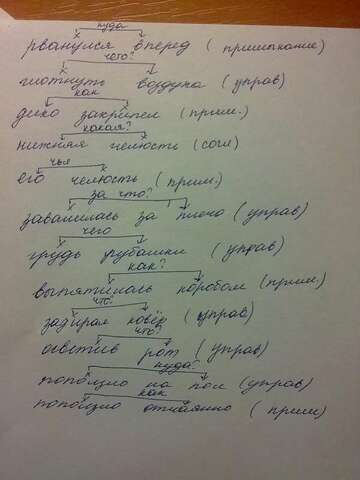 куда
рванулся вперед (примыкание)
чего?
глотнуть воздуха (управ)
как
дико закричал (прим.)
какая?
нижняя челюсть (согл)
чья
его челюсть (прим.)
за что?
завалилась за плечо (управ)
чего
грудь рубашки (управ)
как?
выпятилась коробом (прим.)
что?
задирал ковёр (управ)
что?
осветив рот (управ)
куда?
поползло на пол (управ)
как
поползло отчаянно (прим)